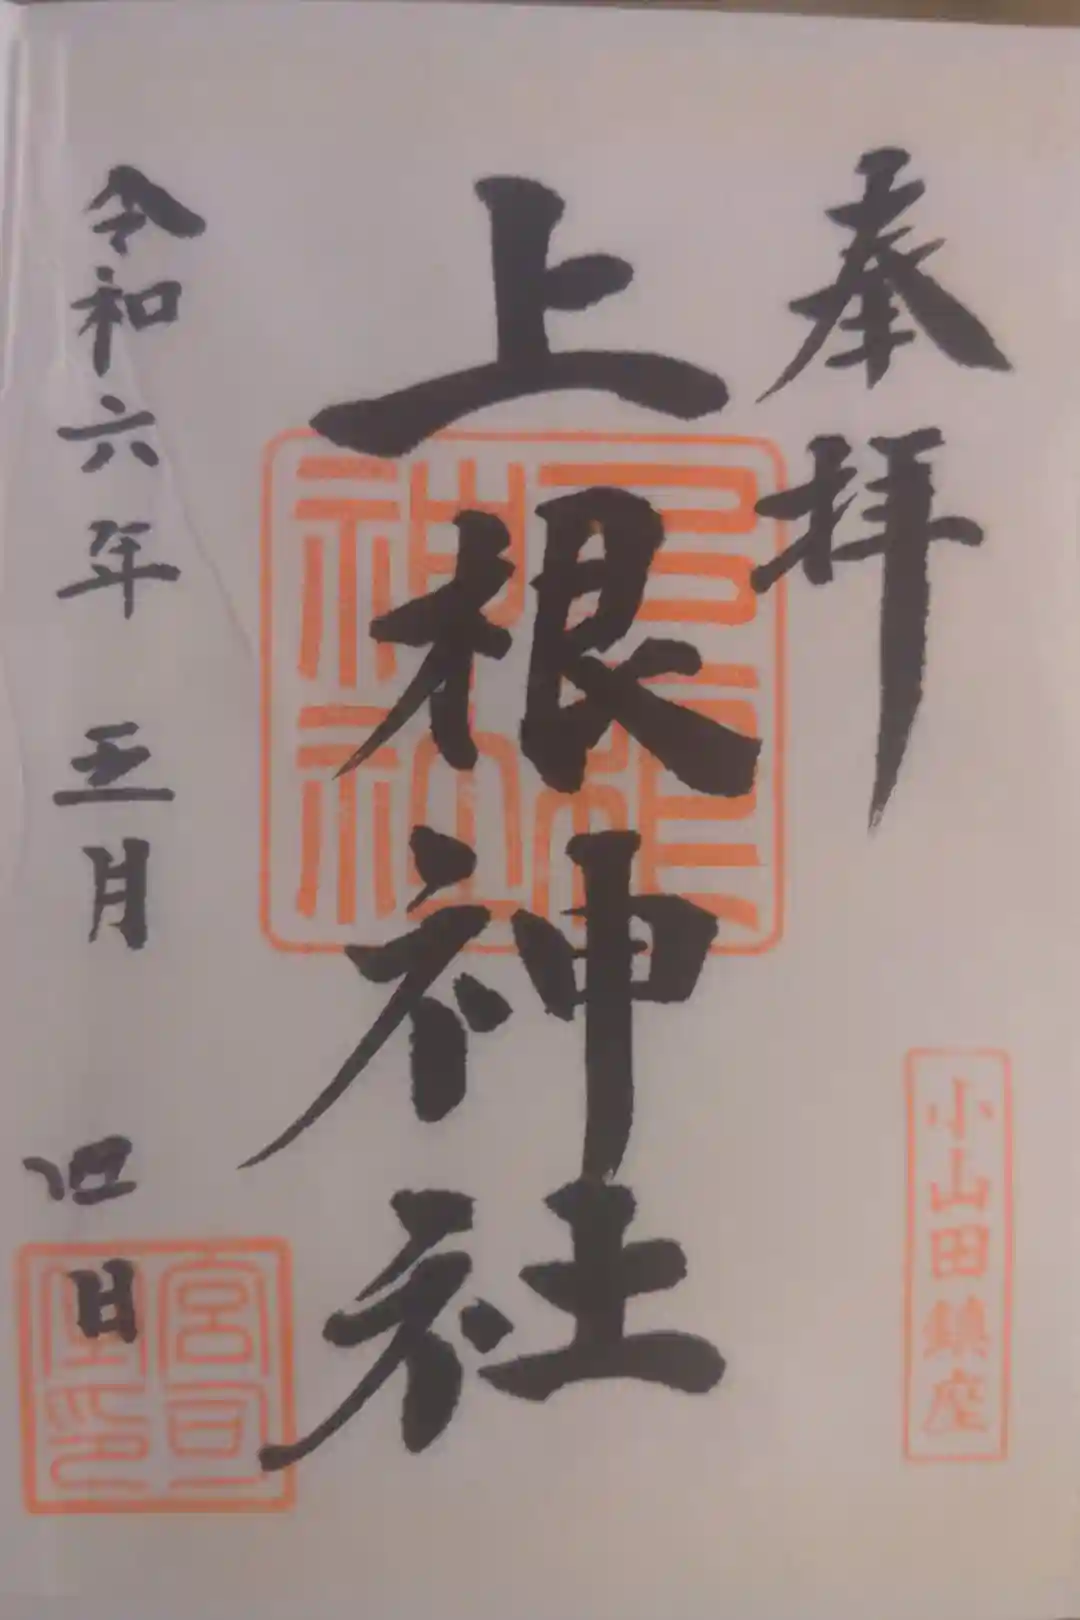 奉拝
小山田鎮座
上根神社
神社
令和六年 五月 四日
宮司
印